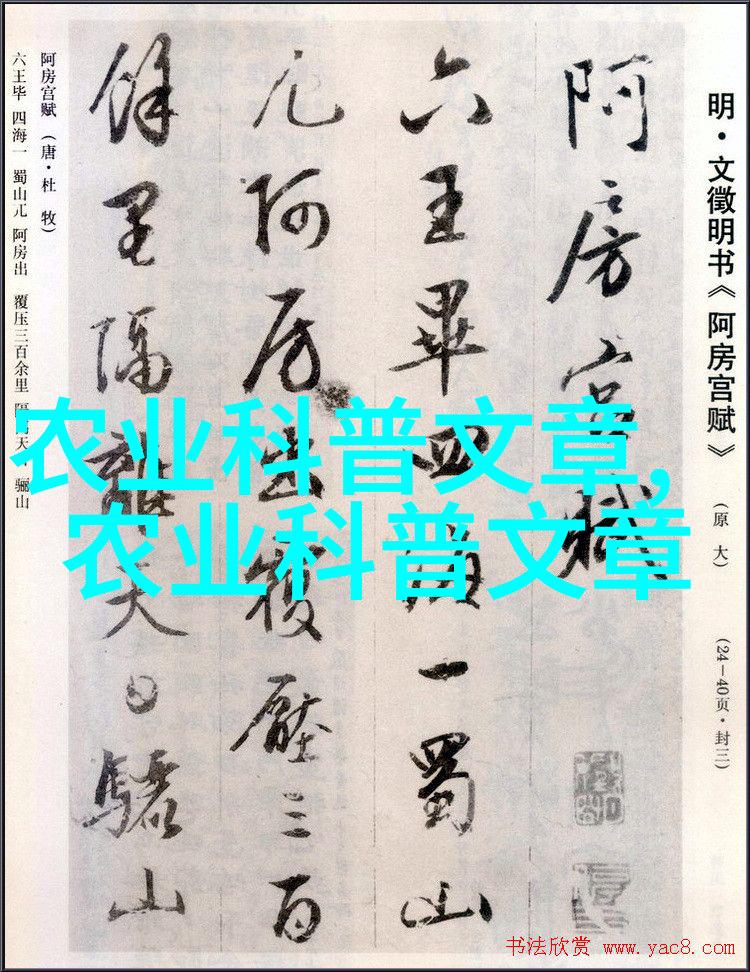 明·文徵明书《阿房宫赋》 (原大) (24—40页·封三)
阿房宫赋
六王畢四海一蜀山
兀阿房出覆壓三百
餘里隔離天日驪山
阿房宫赋 (唐·杜 牧)
六王毕 四海一 蜀山兀 阿房出 覆压三百余里 隔 天 骊山
农业科普文章,
农业科普文章
书法欣赏 www.yac8.com